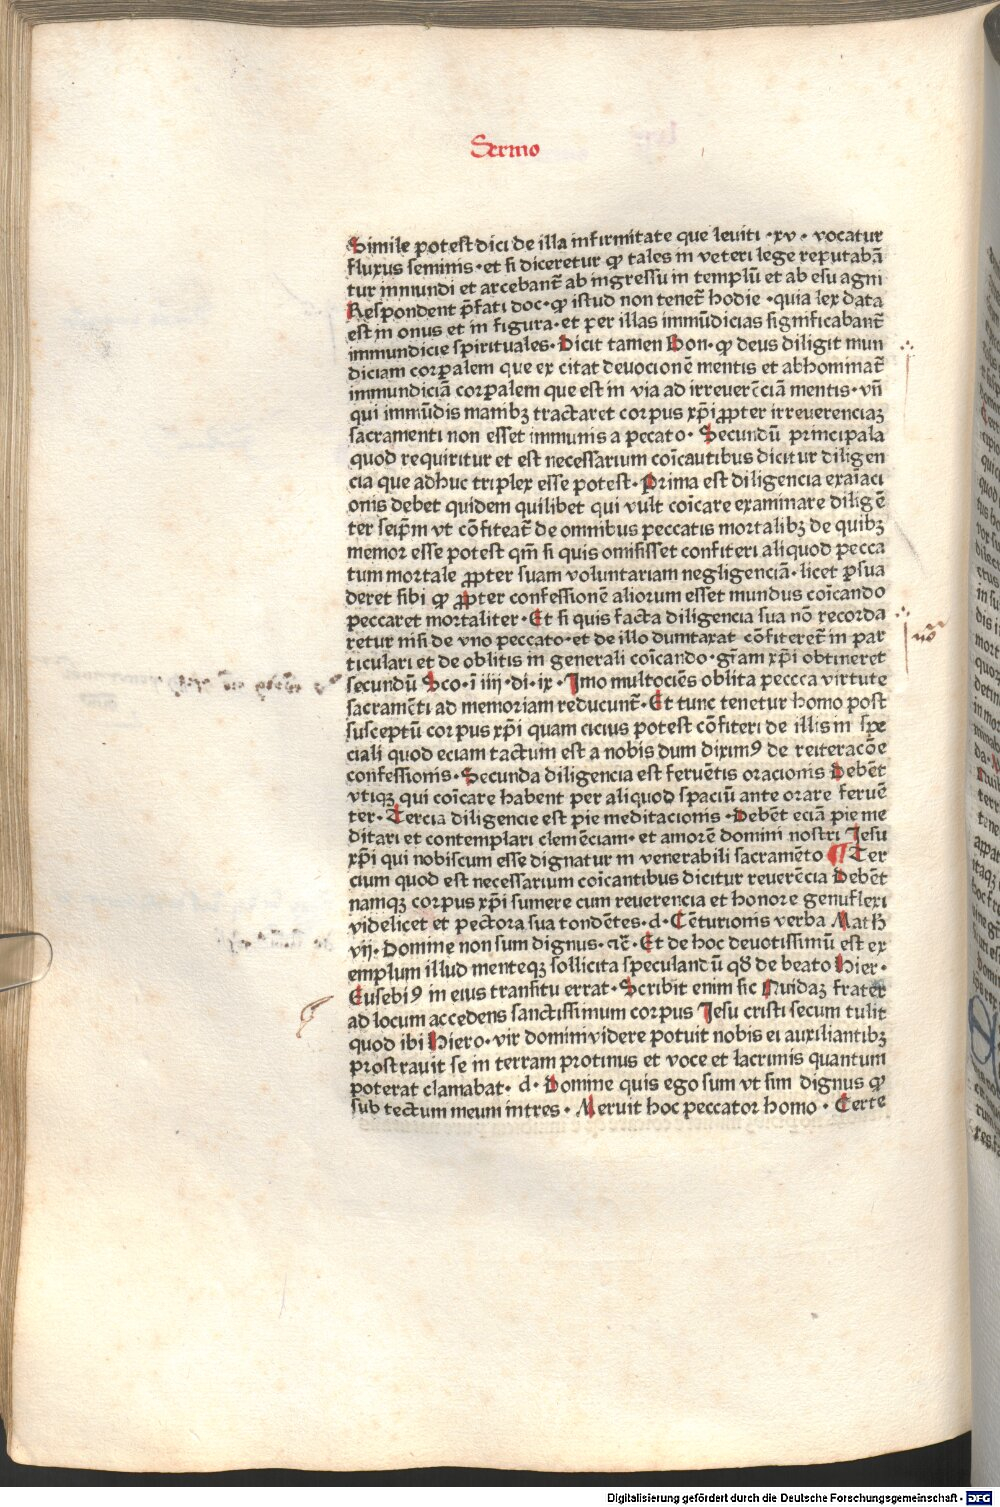 Sermo
Simile potest dici de illa infirmitate que leuiti ·xv· vocatur
fluxus seminis· et si diceretur ꝙ tales in veteri lege reputabā
tur inmundi et arcebant᷑ ab ingressu in templū et ab esu agni
Respondent p̄fati doc· ꝙ istud non tenet᷑ hodie ·quia lex data
est in onus et in figura· et per illas immūdicias significabant᷑
immundicie spirituales· Dicit tamen Bon· ꝙ deus diligit mun
diciam corꝑalem que ex citat deuocionē mentis et abhominat᷑
immundiciā corꝑalem que est in via ad irreuerēciā mentis· vñ
qui immūdis manibꝫ tractaret corpus xp̄i ꝓpter irreuerenciaꝫ
sacramenti non esset immunis a peccato· Secundū principala
quod requiritur et est necessarium coīcantibus dicitur diligen
cia que adhuc triplex esse potest· Prima est diligencia exaīaci
onis debet quidem quilibet qui vult coīcare examinare diligē
ter seip̄m vt cōfiteat᷑ de omnibus peccatis mortalibꝫ de quibꝫ
memor esse potest qm̄ si quis omisisset confiteri aliquod pecca
tum mortale ꝓpter suam voluntariam negligenciā· licet ꝑsua
deret sibi ꝙ ꝓpter confessionē aliorum esset mundus coīcando
peccaret mortaliter· Et si quis facta diligencia sua nō recorda
retur nisi de vno peccato· et de illo dumtaxat cōfiteret᷑ in par
ticulari et de oblitis in generali coīcando· gr̄am xp̄i obtineret
secundū Sco· ī iiij· di· ix· Imo multociēs oblita peccca virtute
sacramēti ad memoriam reducunt᷑· Et tunc tenetur homo post
susceptū corpus xp̄i quam cicius potest cōfiteri de illis in spe
ciali quod eciam tactum est a nobis dum diximꝰ de reiteracōe
confessionis· Secunda diligencia est feruētis oracionis Debēt
vtiqꝫ qui coīcare habent per aliquod spaciū ante orare feruē
ter· Tercia diligencie est pie meditacionis· Debēt eciā pie me
ditari et contemplari clemēciam· et amorē domini nostri Jesu
xp̄i qui nobiscum esse dignatur in venerabili sacramēto ¶ Ter
cium quod est necessarium coīcantibus dicitur reuerēcia Debēt
namqꝫ corpus xp̄i sumere cum reuerencia et honore genuflexi
videlicet et pectora sua tondētes· d· Cēturionis verba Math
vij· Domine non sum dignus· ⁊c̄· Et de hoc deuotissimū est ex
emplum illud menteqꝫ sollicita speculandū qd̄ de beato Hier·
Eusebiꝰ in eius transitu errat· Scribit enim sic Quidaꝫ frater
ad locum accedens sanctissimum corpus Jesu cristi secum tulit
quod ibi Hiero· vir domini videre potuit nobis ei auxiliantibꝫ
prostrauit se in terram protinus et voce et lacrimis quantum
poterat clamabat· d· Domine quis ego sum vt sim dignus ꝙ
sub tectum meum intres· Meruit hoc peccator homo· Certe
nō
Digitalisierung gefördert durch die Deutsche Forschungsgemeinschaft - DFG